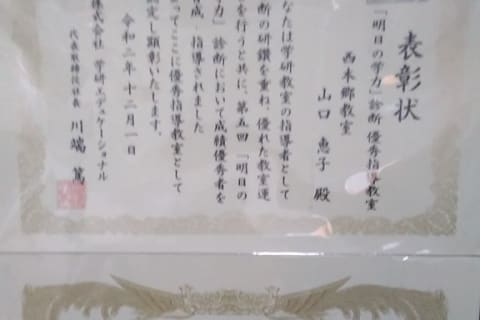 表彰状
「明日の学力」診断優秀指導教室
西本郷教室
山口 恵子 殿
なたは学研教室の指導者として
断の研鑽を重ね、優れた教室運
を行うと共に、第五回「明日の
力」診断において成績優秀者を
成・指導されました
ってここに優秀指導教室として
定し顕彰いたします。
令和二年十二月一日
株式会社 学研エデュケーショナル
代表取締役社長 川端 篤